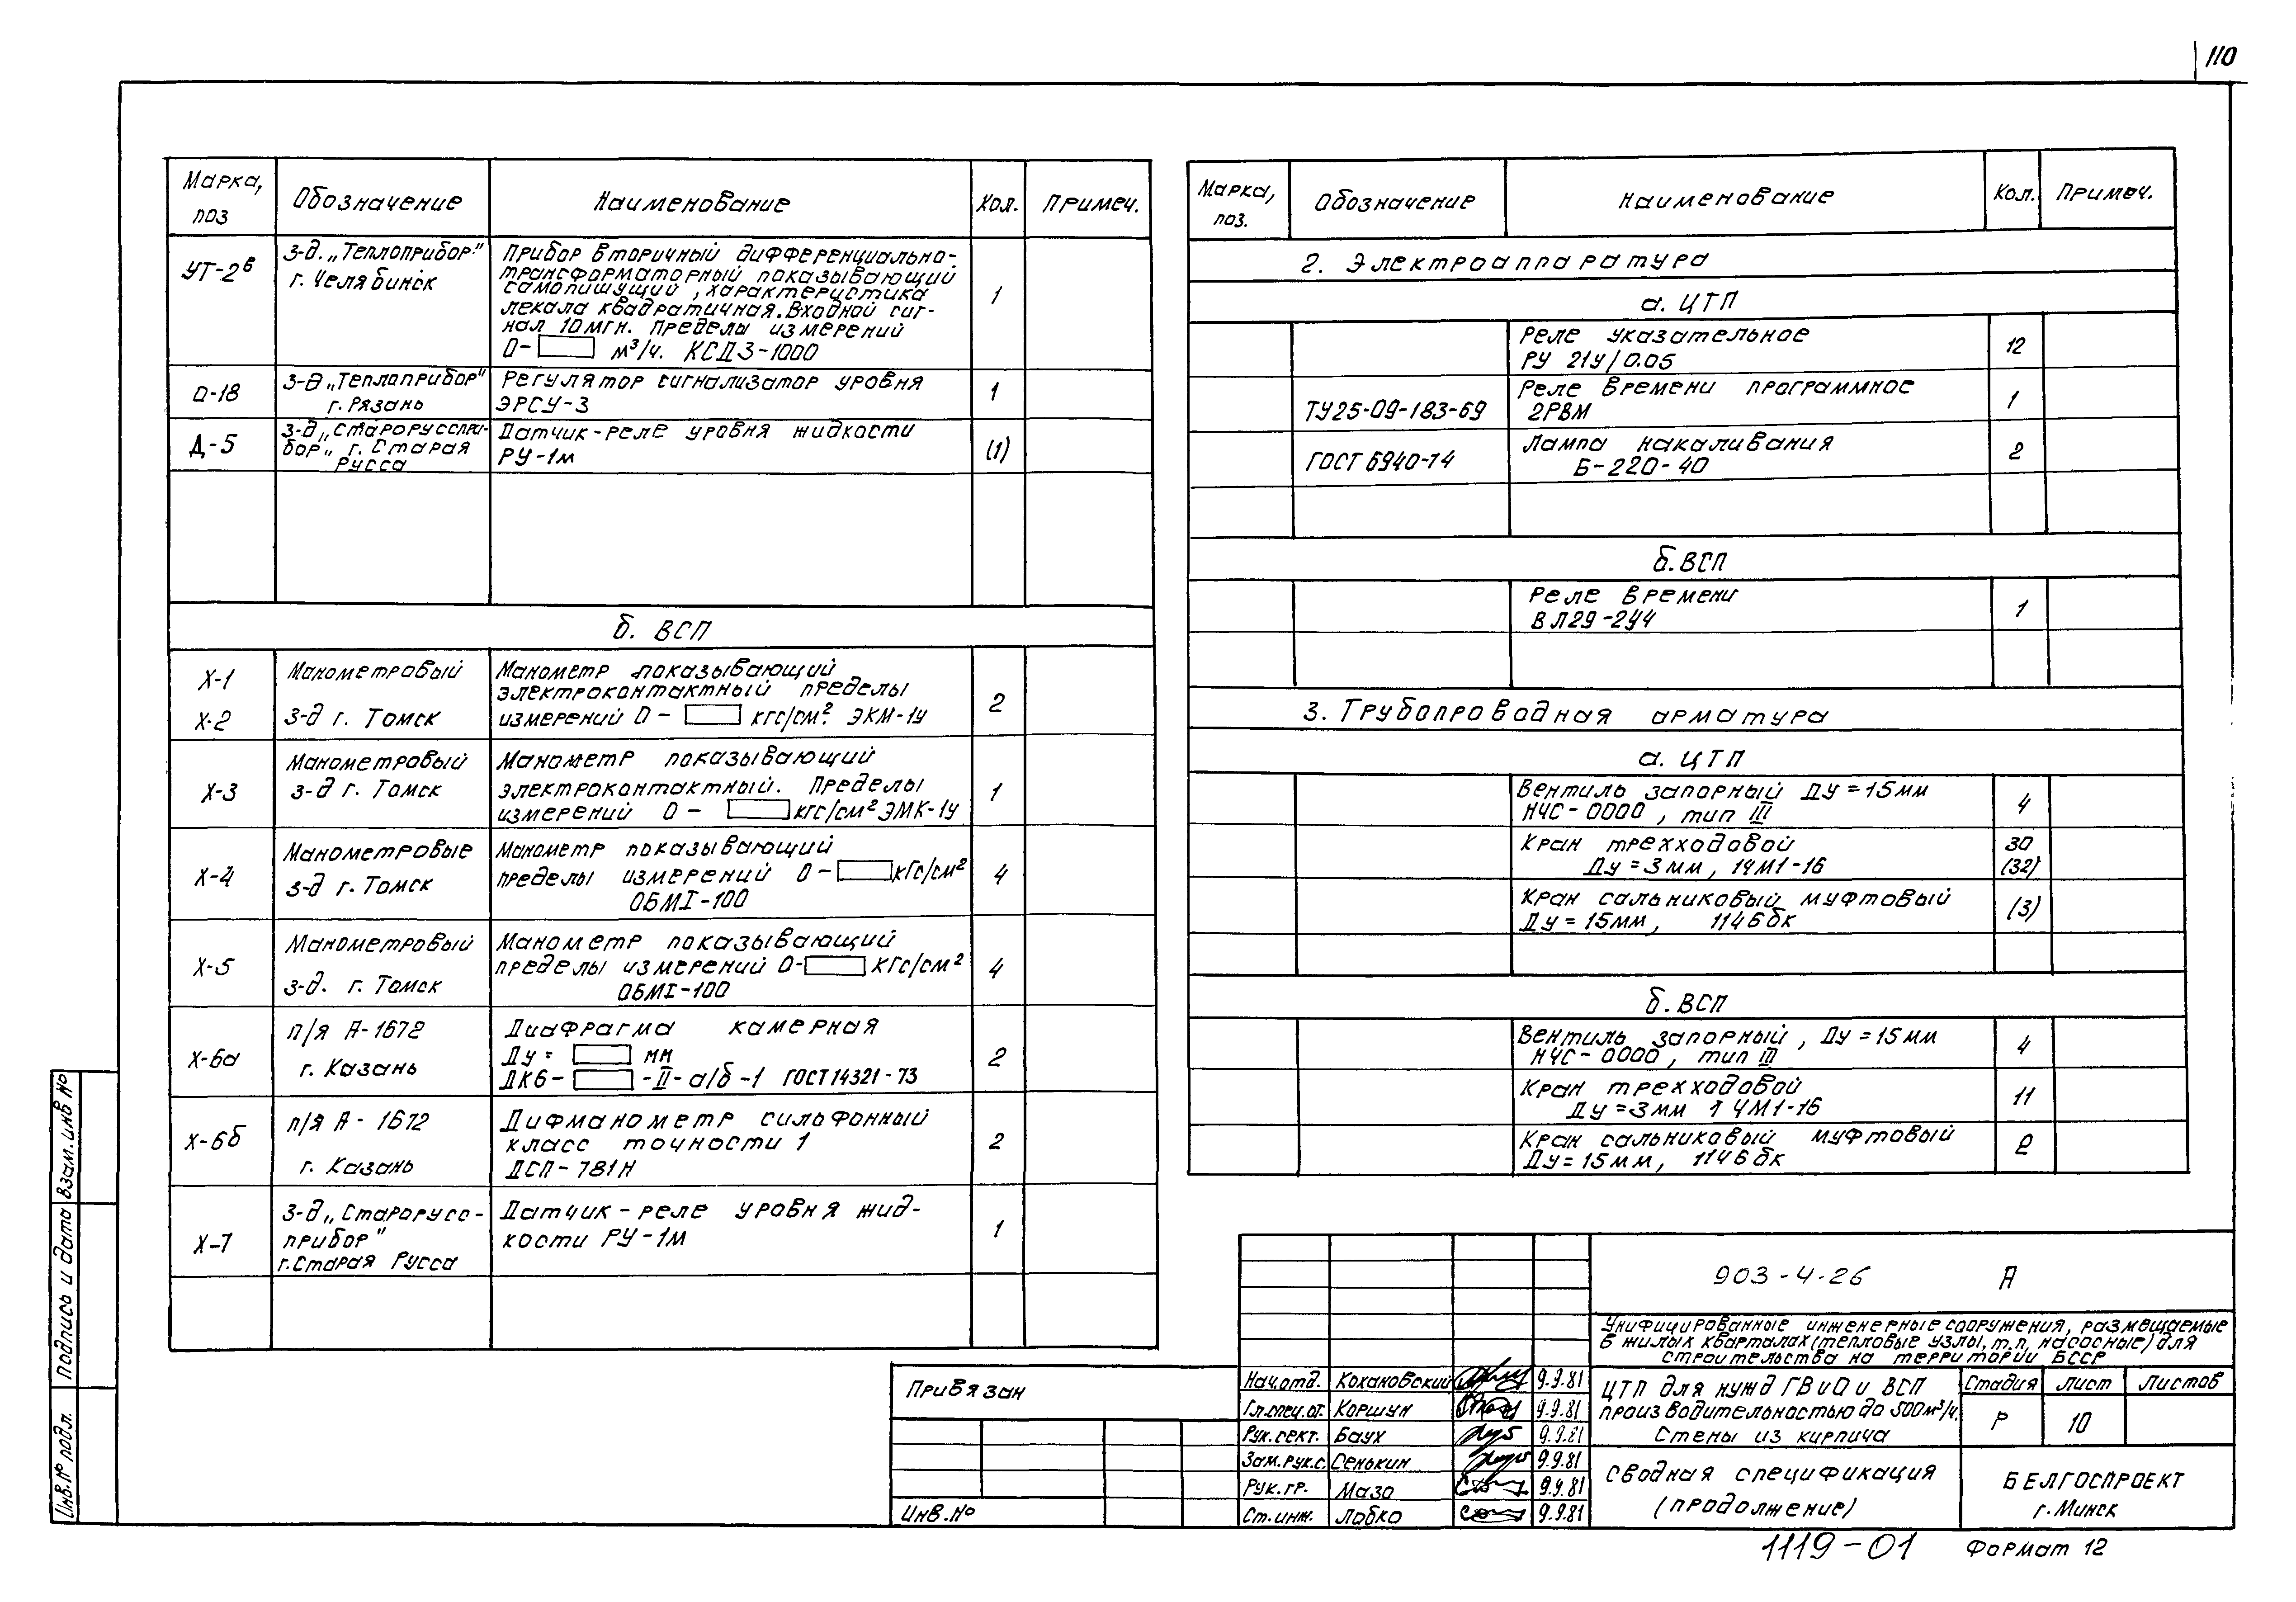 110
Марка, поз
Обозначение
Наименование
Кол.
Примеч.
УТ-2в
з-д. „Теплоприбор"
г. Челябинск
Прибор вторичный дифференциально-
трансформаторный показывающий
самопишущий, характеристика
лекала квадратичная. Входной сиг-
нал 10мгн. пределы измерений
0- м³/ч. КСД3-1000
1
О-18
з-д „Теплоприбор"
г. Рязань
Регулятор сигнализатор уровня
ЭРСУ-3
1
Д-5
з-д „Старорусспри-
бор„ г. Старая
Русса
Датчик-реле уровня жидкости
РУ-1м
(1)
б. ВСП
Х-1
Х-2
Манометровый
з-д г. Томск
Манометр показывающий
электроконтактный пределы
измерений 0 - кгс/см². ЭКМ-1У
2
Х-3
Манометровый
з-д г. Томск
Манометр показывающий
электроконтактный. Пределы
измерений 0 - кгс/см² ЭМК-1У
1
Х-4
Манометровые
з-д г. Томск
Манометр показывающий
пределы измерений 0 - кгс/см²
ОБМI-100
4
Х-5
Манометровый
з-д. г. Томск
Манометр показывающий
пределы измерений 0- кгс/см²
ОБМI-100
4
Х-6а
п/я А-1672
г. Казань
Диафрагма камерная
Ду= мм
ДК6- -II-а/б-1 ГОСТ 14321-73
2
Х-6б
п/я А-1672
г. Казань
Дифманометр сильфонный
класс точности 1
ДСП-781Н
2
Х-7
з-д „Старорусс-
прибор"
г. Старая Русса
Датчик-реле уровня жид-
кости РУ-1м
1
Марка, поз.
Обозначение
Наименование
Кол.
Примеч.
2. Электроаппаратура
а. ЦТП
Реле указательное
РУ 21У/0.05
12
ТУ25-09-183-69
Реле времени программное
2РВМ
1
ГОСТ 6940-74
Лампа накаливания
Б-220-40
2
б. ВСП
Реле времени
ВЛ29-2У4
1
3. Трубопроводная арматура
а. ЦТП
Вентиль запорный Ду=15мм
НЧС-0000, тип III
4
Кран трехходовой
Ду=3мм, 14М1-16
30
(32)
Кран сальниковый муфтовый
Ду=15мм, 11ч6бк
(3)
б. ВСП
Вентиль запорный, Ду=15мм
НЧС-0000, тип III
4
Кран трехходовой
Ду=3мм 14М1-16
11
Кран сальниковый муфтовый
Ду=15мм, 11ч6бк
2
Взам. инв №
Подпись и дата
Инв. № подл.
Привязан
Инв. №
Нач. отд. Кохановский 9.9.81
Гл. спец. от. Коршун 9.9.81
Рук. сект. Баух 9.9.81
Зам. рук. с. Сенькин 9.9.81
Рук. гр. Мазо 9.9.81
Ст. инж. Лобко 9.9.81
903-4-26 А
Унифицированные инженерные сооружения, размещаемые
в жилых кварталах (тепловые узлы, т.п, насосные) для
строительства на территории БССР
ЦТП для нужд ГВ и О и ВСП
производительностью до 500м³/ч.
Стены из кирпича
Стадия Лист Листов
Р 10
Сводная спецификация
(продолжение)
БЕЛГОСПРОЕКТ
г. Минск
1119-01
Формат 12